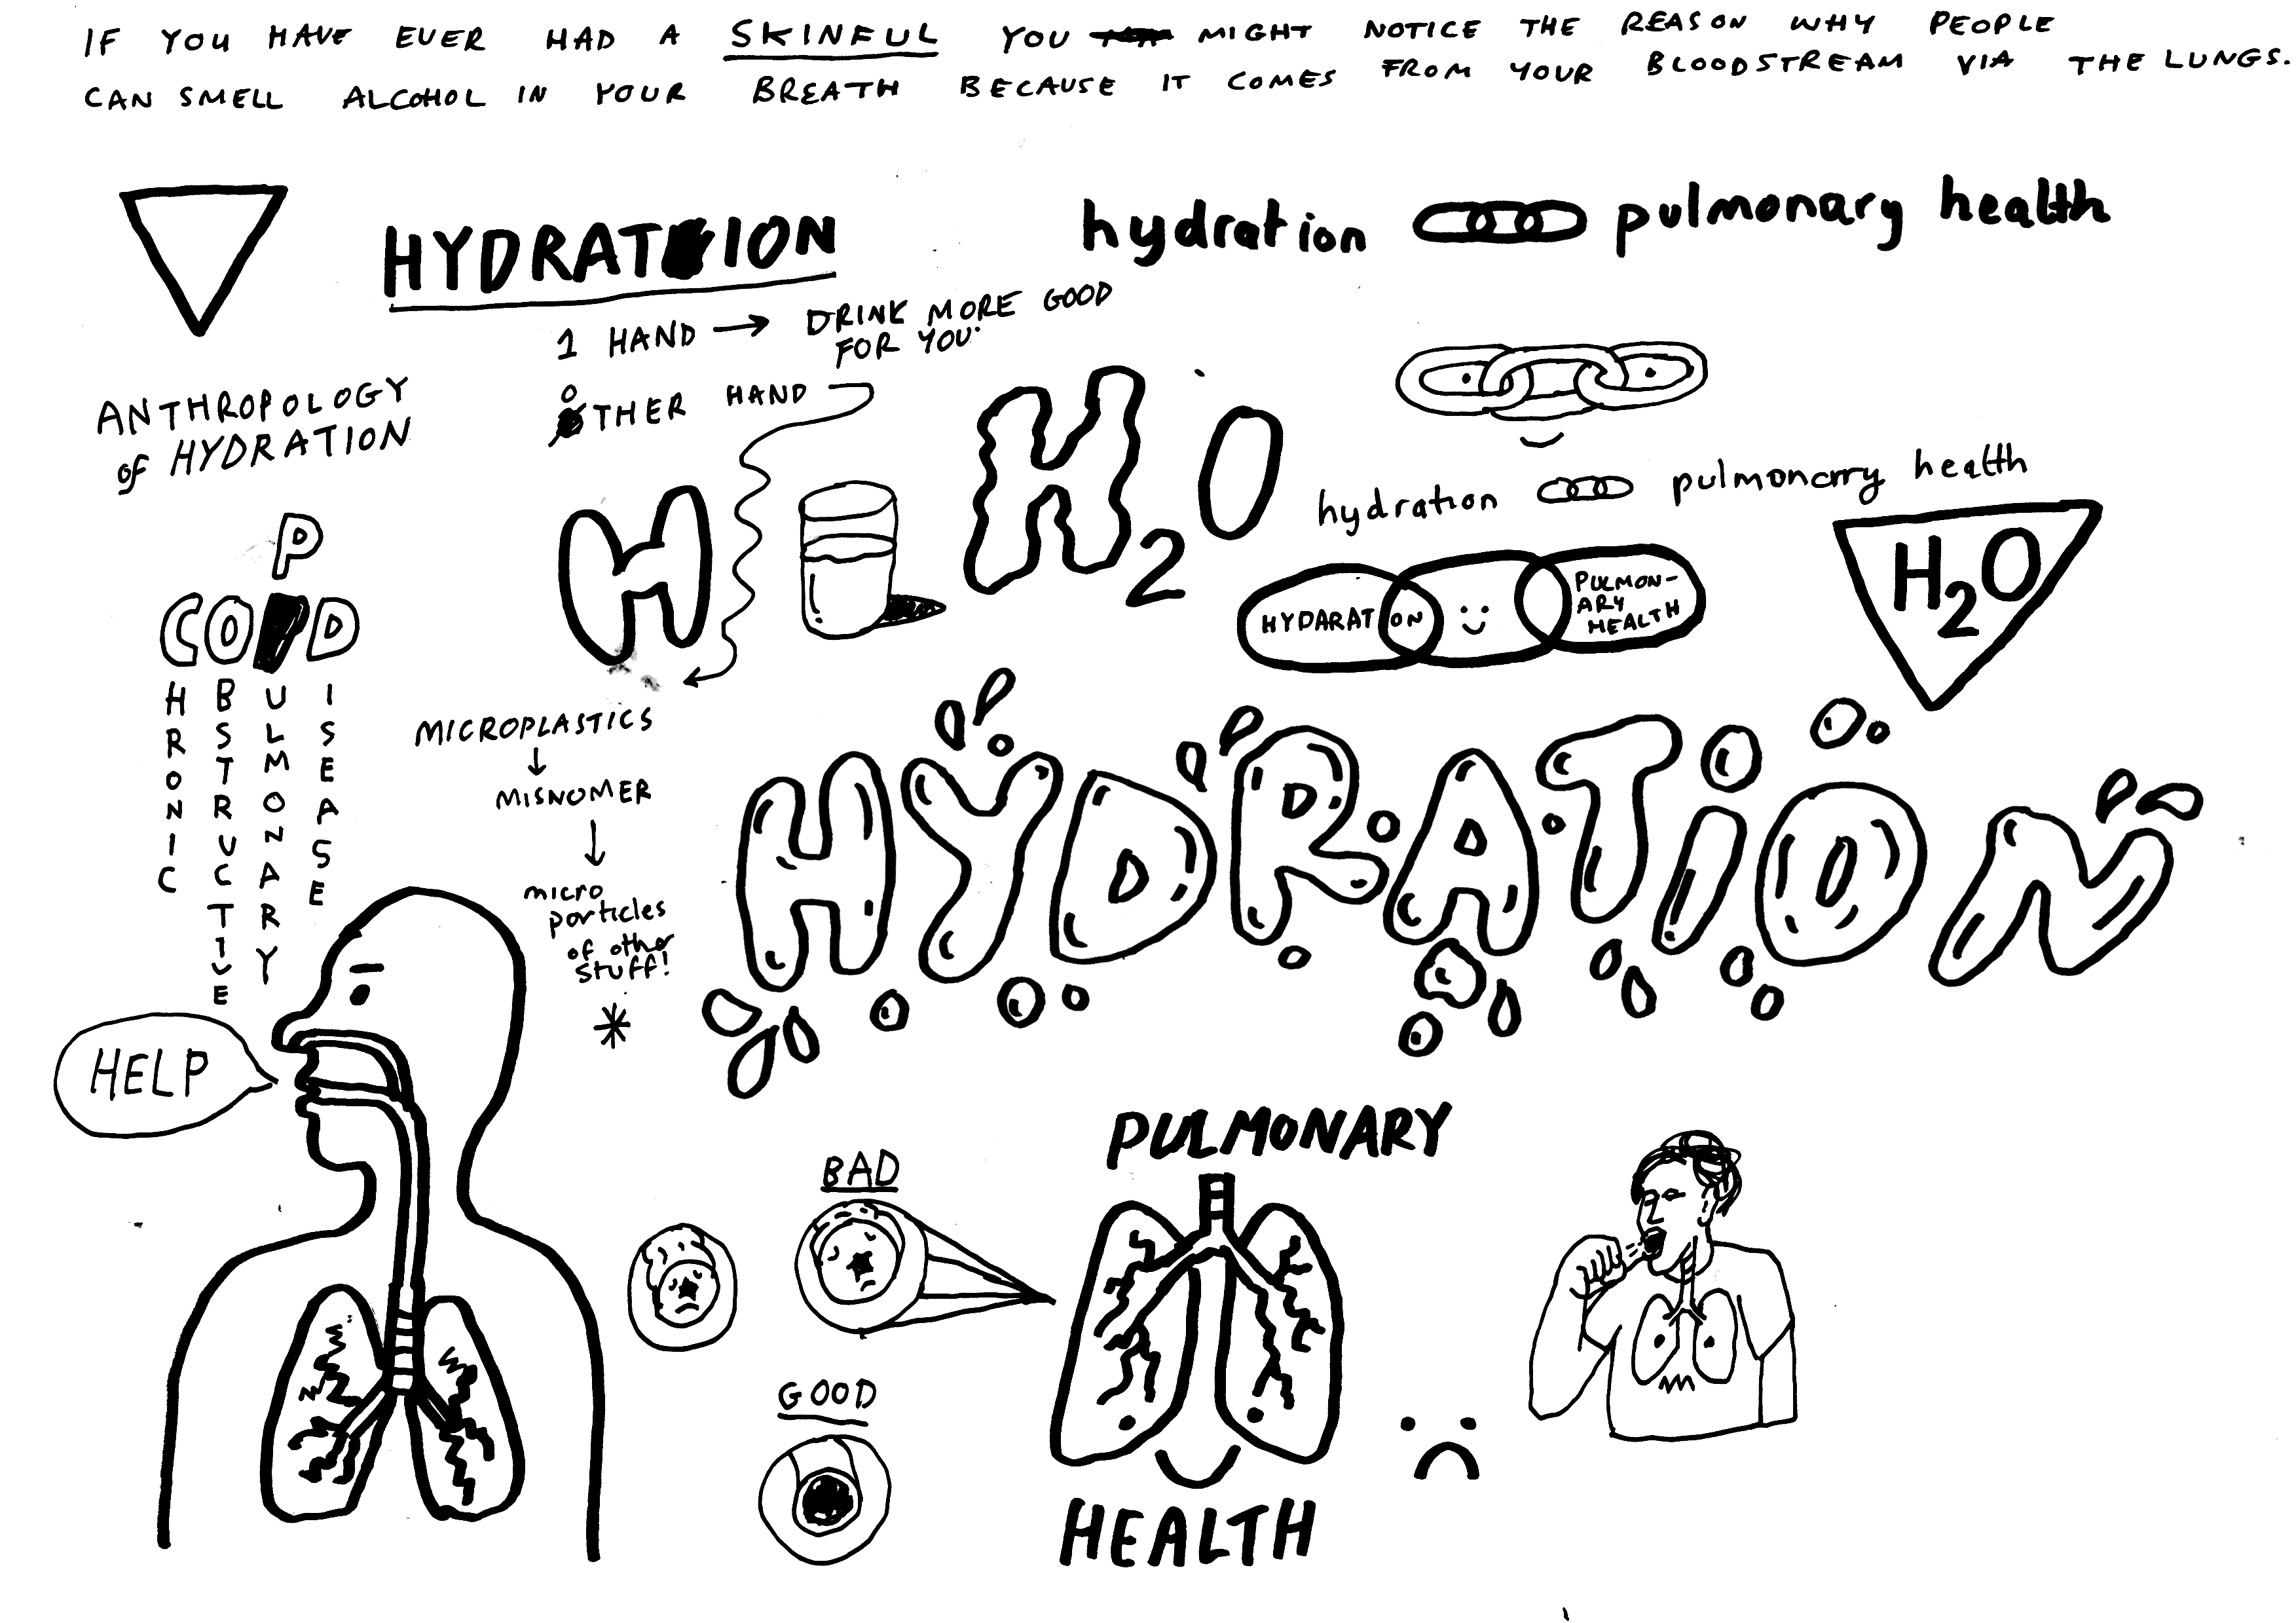 IF YOU HAVE EVER HAD A SKINFUL YOU MIGHT NOTICE THE REASON WHY PEOPLE
CAN SMELL ALCOHOL IN YOUR BREATH BECAUSE IT COMES FROM YOUR BLOODSTREAM VIA THE LUNGS.
HYDRATION
hydration pulmonary health
1 HAND → DRINK MORE GOOD
FOR YOU.
OTHER HAND
ANTHROPOLOGY
of HYDRATION
H
H2O
hydration pulmonary health
HYDARATION
PULMON-
ARY
HEALTH
H2O
P
COPD
CHRONIC
OBSTRUCTIVE
PULMONARY
DISEASE
MICROPLASTICS
↓
MISNOMER
↓
micro
particles
of other
stuff!
*
HYDRATION
HELP
BAD
GOOD
PULMONARY
HEALTH